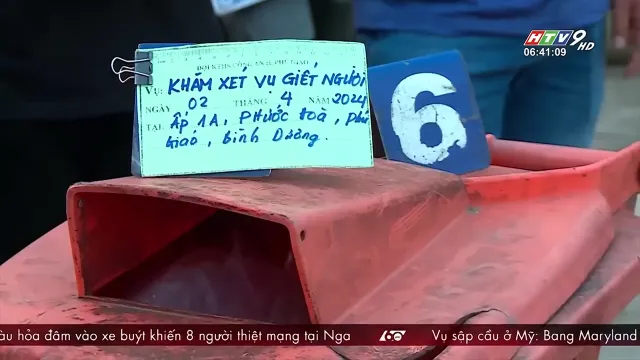 HTV9 HD
06:41:09
ĐỘI KTHS CÔNG AN H. PHÚ GIÁO
VỤ: KHÁM XÉT VỤ GIẾT NGƯỜI
NGÀY 02 THÁNG 4 NĂM 2024
TẠI: Ấp 1A, PHƯỚC Hoà, Phú
Giáo, Bình Dương.
6
àu hỏa đâm vào xe buýt khiến 8 người thiệt mạng tại Nga 60 Vụ sập cầu ở Mỹ: Bang Maryland